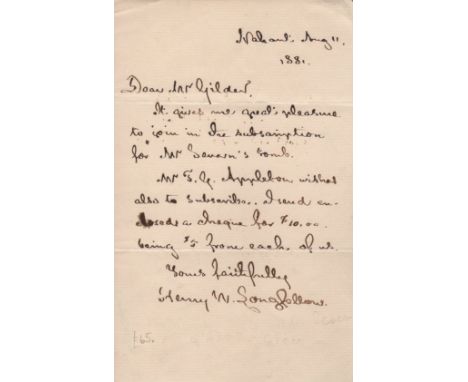 Nahant. Aug 11.
1881.
Dear Mr Gilder,
It gives me great pleasure
to join in the subscription
for Mr Severn's tomb.
Mr T. G. Appleton wishes
also to subscribe. I send en-
closed a cheque for $10.00
being $5 from each of us.
Yours faithfully
Henry W. Longfellow.
65.